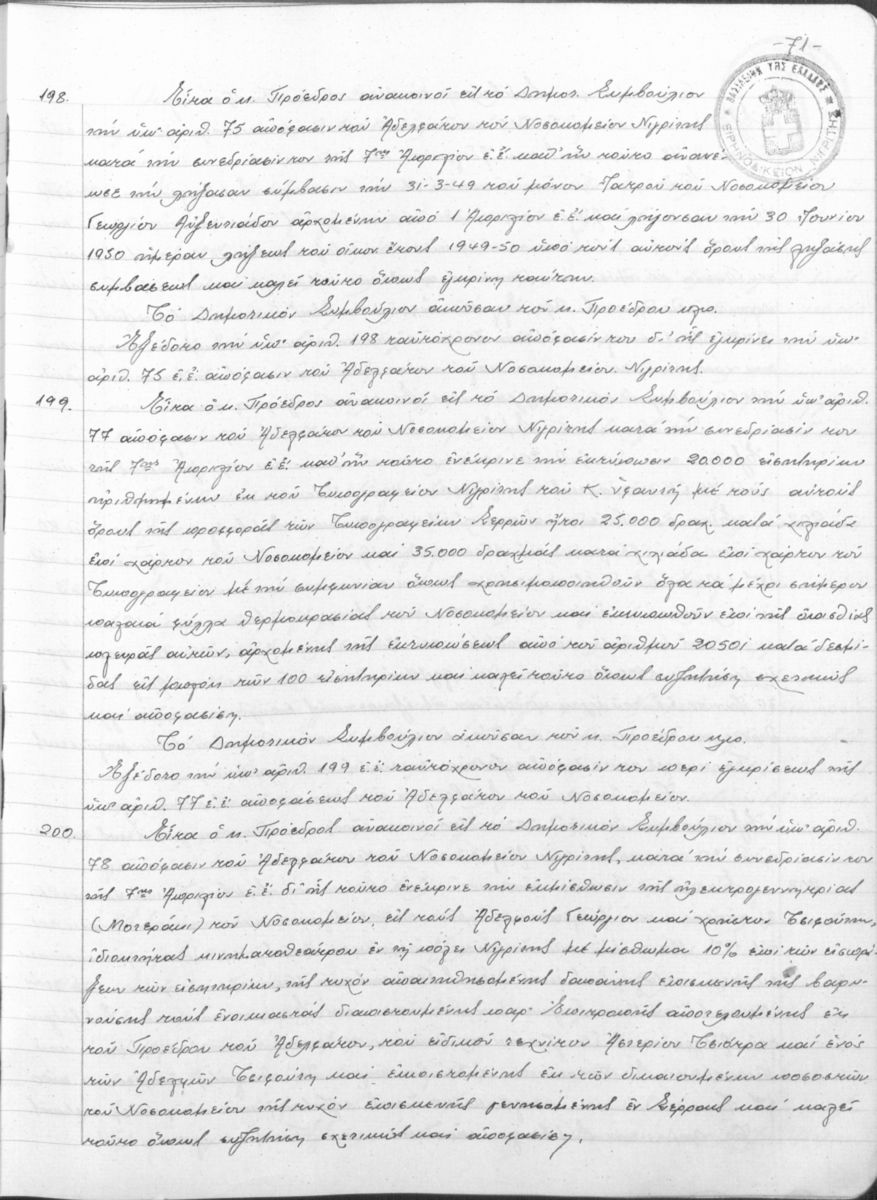 -71-
ΒΑΣΙΛΕΙΟΝ ΤΗΣ ΕΛΛΑΔΟΣ
ΕΙΡΗΝΟΔΙΚΕΙΟΝ ΝΙΓΡΙΤΗΣ
198. Εἶτα ὁ κ. Πρόεδρος ἀνακοινοῖ εἰς τό Δημοτ. Συμβούλιον
τήν ὑπ' ἀριθ. 75 ἀπόφασιν τοῦ Ἀδελφάτου τοῦ Νοσοκομείου Νιγρίτης
κατά τήν συνεδρίασίν του τῆς 7ης Ἀπριλίου ἐ.ἔ. καθ' ἥν τοῦτο ἀνανε-
ωσε τήν λήξασαν σύμβασιν τήν 31-3-49 τοῦ μόνου Ἰατροῦ τοῦ Νοσοκομείου
Γεωργίου Αὐξεντιάδου ἀρχομένην ἀπό 1 Ἀπριλίου ἐ.ἔ. καί λήγουσαν τήν 30 Ἰουνίου
1950 ἡμέραν λήξεως τοῦ οἰκον. ἔτους 1949-50 ὑπό τούς αὐτούς ὅρους τῆς ληξάσης
συμβάσεως καί καλεῖ τοῦτο ὅπως ἐγκρίνη ταύτην.
Τό Δημοτικόν Συμβούλιον ἀκοῦσαν τοῦ κ. Προέδρου κλπ.
Ἐξέδοτο τήν ὑπ' ἀριθ. 198 ταὐτόχρονον ἀπόφασίν του δι' ἧς ἐγκρίνει τήν ὑπ'
ἀριθ. 75 ἐ.ἔ. ἀπόφασιν τοῦ Ἀδελφάτου τοῦ Νοσοκομείου Νιγρίτης.
199. Εἶτα ὁ κ. Πρόεδρος ἀνακοινοῖ εἰς τό Δημοτικόν Συμβούλιον τήν ὑπ' ἀριθ.
77 ἀπόφασιν τοῦ Ἀδελφάτου τοῦ Νοσοκομείου Νιγρίτης κατά τήν συνεδρίασίν του
τῆς 7ης Ἀπριλίου ἐ.ἔ. καθ' ἥν τοῦτο ἐνέκρινε τήν ἐκτύπωσιν 20.000 εἰσιτηρίων
ἠριθμημένων ἐκ τοῦ Τυπογραφείου Νιγρίτης τοῦ Κ. Ὑφαντῆ μέ τούς αὐτούς
ὅρους τῆς προσφορᾶς τῶν Τυπογραφείων Σερρῶν ἤτοι 25.000 δραχ. κατά χιλιάδα
ἐπί χάρτου τοῦ Νοσοκομείου καί 35.000 δραχμάς κατά χιλιάδα ἐπί χάρτου τοῦ
Τυπογραφείου μέ τήν συμφωνίαν ὅπως χρησιμοποιηθοῦν ὅλα τά μέχρι σήμερον
παλαιά φύλλα θερμοκρασίας τοῦ Νοσοκομείου καί ἐκτυπωθοῦν ἐπί τῆς ὄπισθεν
πλευρᾶς αὐτῶν, ἀρχομένης τῆς ἐκτυπώσεως ἀπό τοῦ ἀριθμοῦ 20501 κατά δεσμί-
δας εἰς μπλόκ τῶν 100 εἰσιτηρίων καί καλεῖ τοῦτο ὅπως συζητήση σχετικῶς
καί ἀποφασίση.
Τό Δημοτικόν Συμβούλιον ἀκοῦσαν τοῦ κ. Προέδρου κλπ.
Ἐξέδοτο τήν ὑπ' ἀριθ. 199 ἐ.ἔ. ταὐτόχρονον ἀπόφασίν του περί ἐγκρίσεως τῆς
ὑπ' ἀριθ. 77 ἐ.ἔ. ἀποφάσεως τοῦ Ἀδελφάτου τοῦ Νοσοκομείου.
200. Εἶτα ὁ κ. Πρόεδρος ἀνακοινοῖ εἰς τό Δημοτικόν Συμβούλιον τήν ὑπ' ἀριθ.
78 ἀπόφασιν τοῦ Ἀδελφάτου τοῦ Νοσοκομείου Νιγρίτης, κατά τήν συνεδρίασίν του
τῆς 7ης Ἀπριλίου ἐ.ἔ. δι' ἧς τοῦτο ἐνέκρινε τήν ἐκμίσθωσιν τῆς ἠλεκτρογεννητρίας
(Μοτεράκι) τοῦ Νοσοκομείου, εἰς τούς Ἀδελφούς Γεώργιον καί Χρῆστον Τσιφούτη,
ἰδιοκτήτας κινηματοθεάτρου ἐν τῇ πόλει Νιγρίτης μέ μίσθωμα 10% ἐπί τῶν εἰσπρά-
ξεων τῶν εἰσιτηρίων, τῆς τυχόν ἀπαιτηθησομένης δαπάνης ἐπισκευῆς τῆς βαρυ-
νούσης τούς ἐνοικιαστάς διαπιστουμένης παρ' Ἐπιτροπῆς ἀποτελουμένης ἐκ
τοῦ Προέδρου τοῦ Ἀδελφάτου, τοῦ εἰδικοῦ τεχνίτου Ἀστερίου Τσιάτρα καί ἑνός
τῶν Ἀδελφῶν Τσιφούτη καί ἐκπιπτομένης ἐκ τῶν δικαιουμένων ποσοστῶν
τοῦ Νοσοκομείου τῆς τυχόν ἐπισκευῆς γενησομένης ἐν Σέρραις καί καλεῖ
τοῦτο ὅπως συζητήση σχετικῶς καί ἀποφασίση.